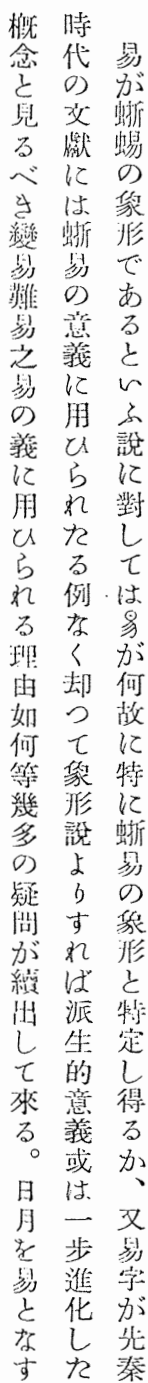 易が蜥蜴の象形であるといふ說に對しては易が何故に特に蜥易の象形と特定し得るか、又易字が先秦
時代の文獻には蜥易の意義に用ひられたる例なく却つて象形說よりすれば派生的意義或は一步進化した
槪念と見るべき變易難易之易の義に用ひられる理由如何等幾多の疑問が續出して來る。日月を易となす